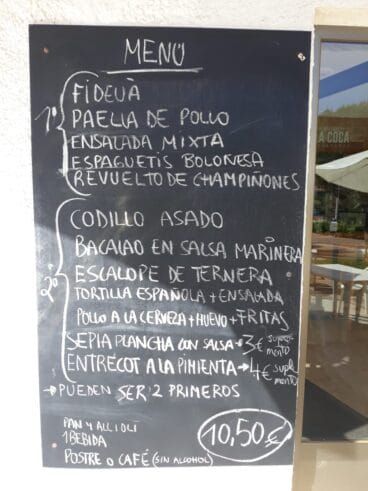 MENÚ
1º
FIDEUÀ
PAELLA DE POLLO
ENSALADA MIXTA
ESPAGUETIS BOLOÑESA
REVUELTO DE CHAMPIÑONES
2º
CODILLO ASADO
BACALAO EN SALSA MARINERA
ESCALOPE DE TERNERA
TORTILLA ESPAÑOLA + ENSALADA
POLLO A LA CERVEZA + HUEVO + FRITAS
SEPIA PLANCHA CON SALSA → 3€ suplemento
ENTRECOT A LA PIMIENTA → 4€ suplemento
→ PUEDEN SER 2 PRIMEROS
PAN Y ALLIOLI
1 BEBIDA
POSTRE O CAFÉ (SIN ALCOHOL)
10,50€
A COCA